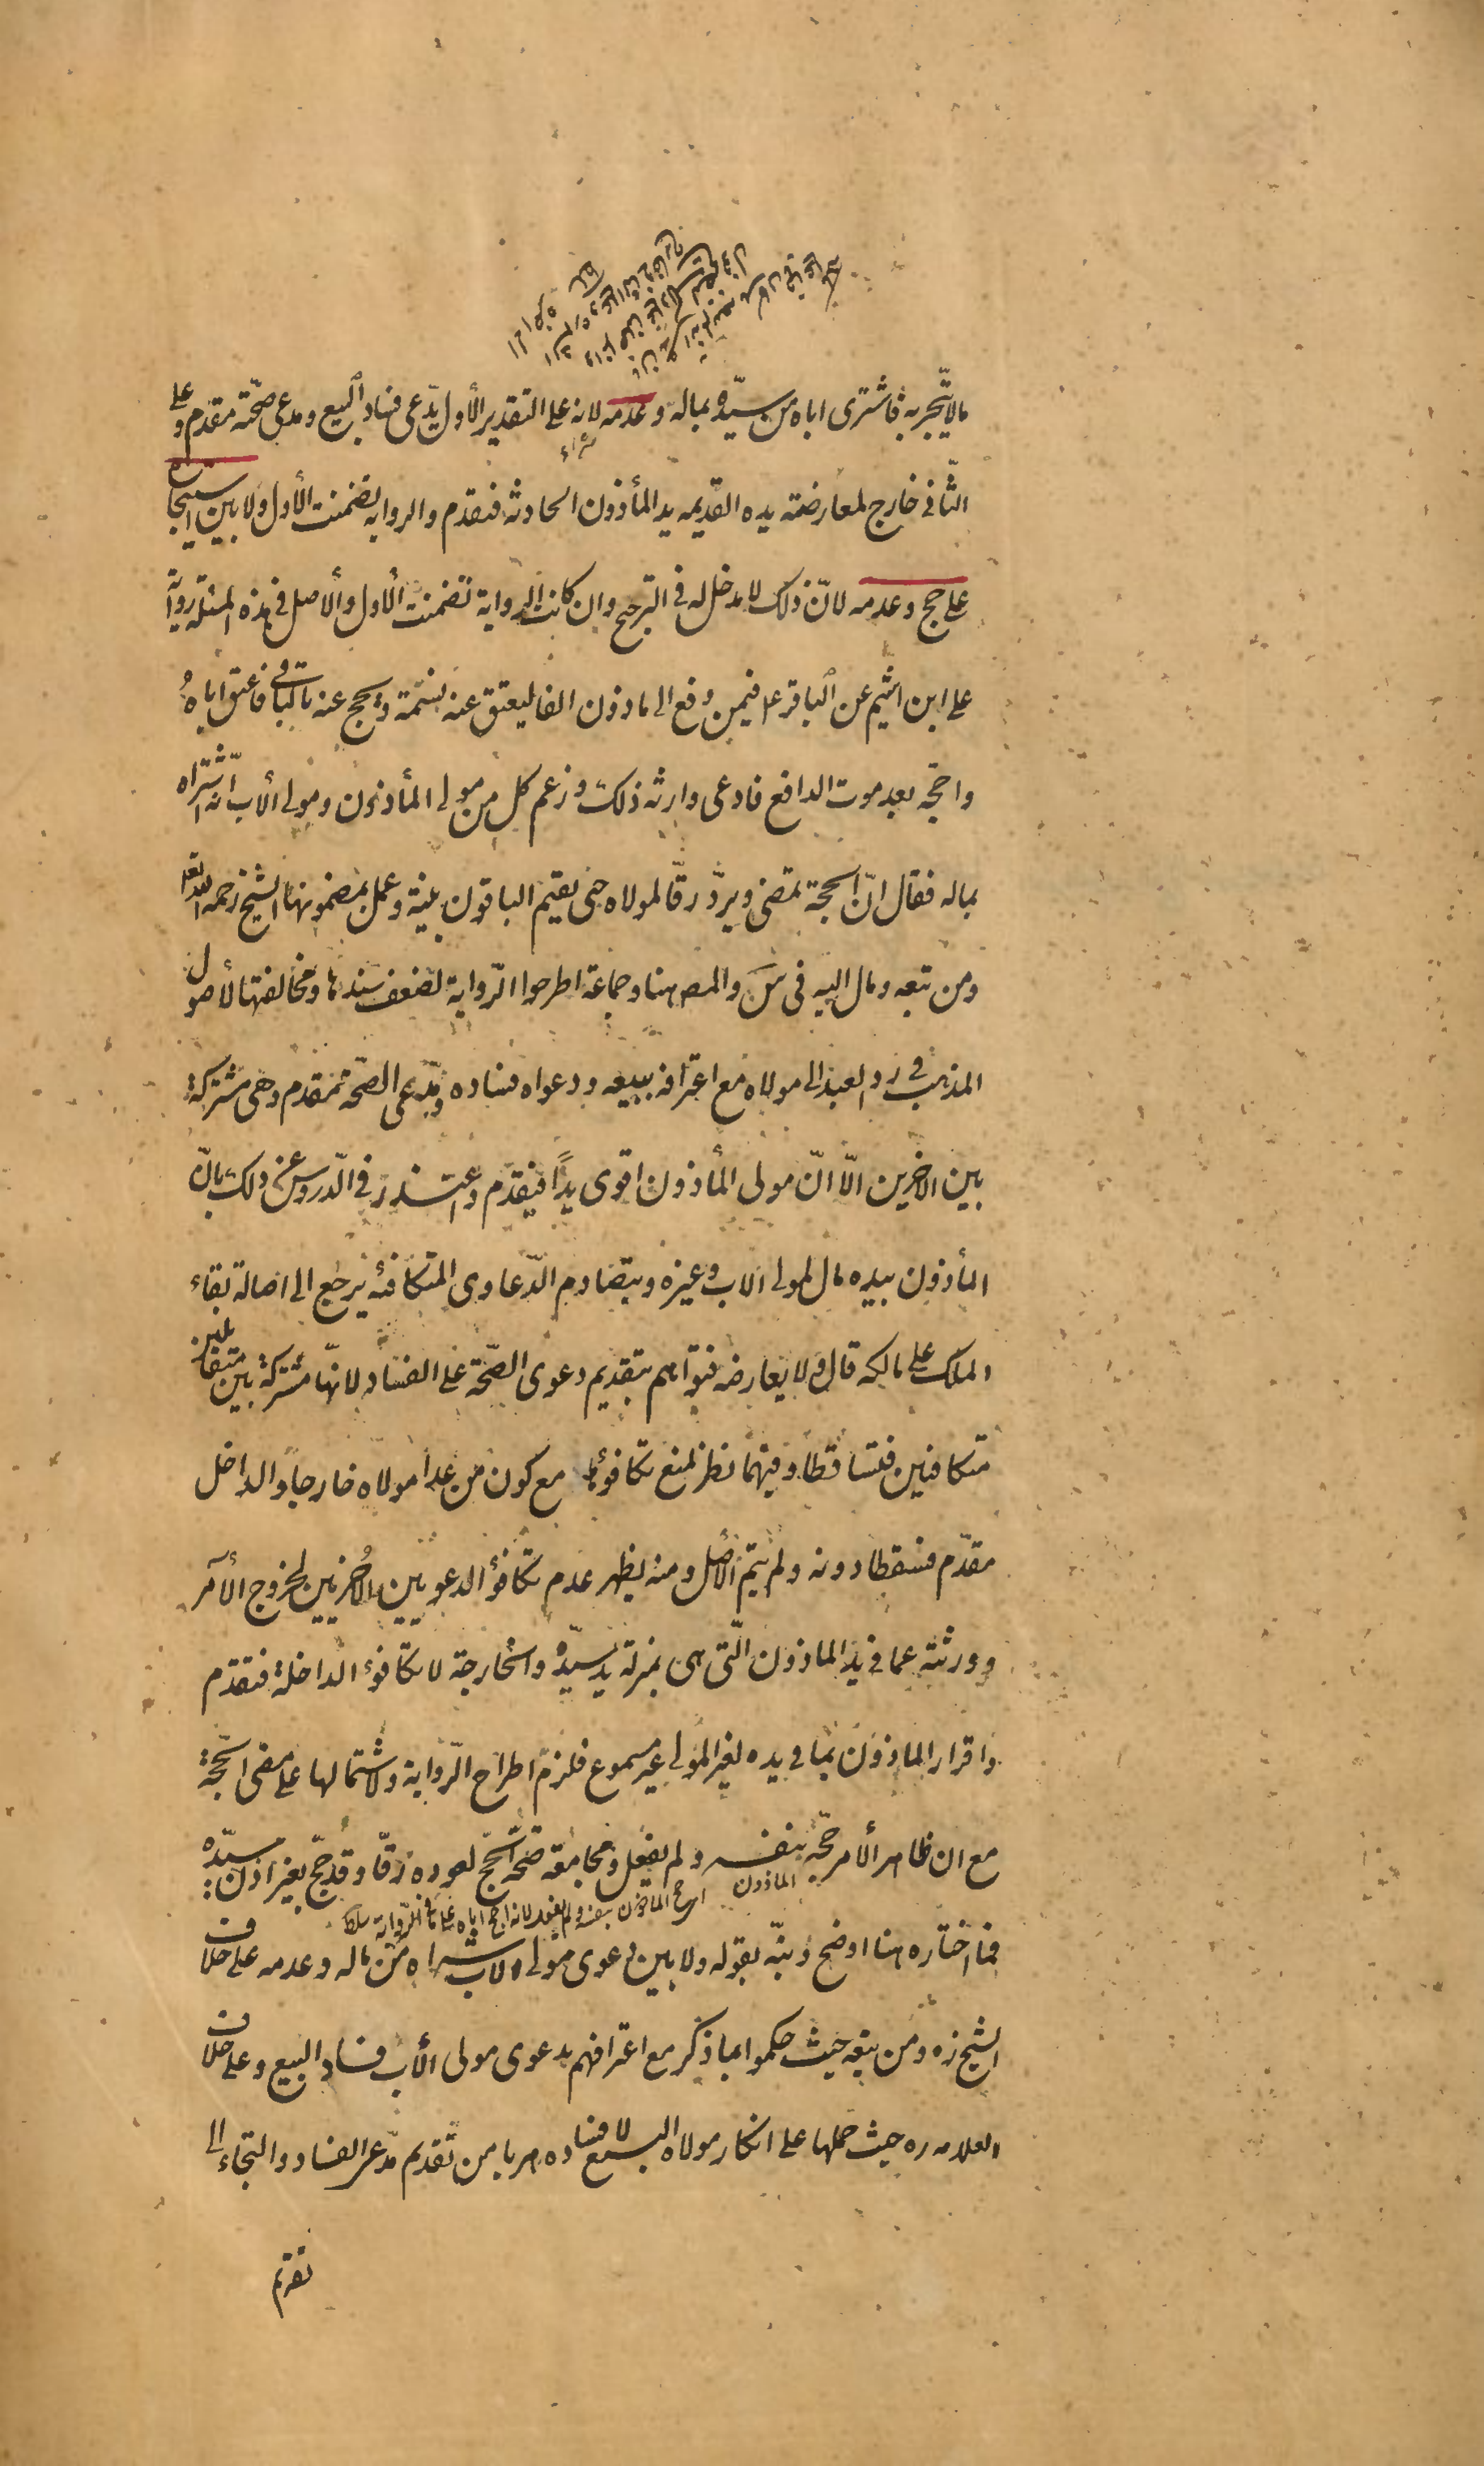 مالا يتّجر به فاشترى اباه من سيّده بماله و عدمه لانه على التقدير الأول يدّعى فساد البيع ومدعى صحّته مقدم و على
شراء
الثّانى خارج لمعارضته يده القديمه يد المأذون الحادثه فتقدم والروايه تضمنت الأول ولا بين استيجار
على حج وعدمه لانّ ذلك لا مدخل له فى الترجيح وان كانت الرواية تضمنت الأول والأصل فى هذه المسئلة رواية
على ابن اشيم عن الباقر ع فيمن دفع الى ماذون الفا ليعتق عنه نسمة ويحج عنه بالباقى فاعتق اباهُ
واحجّه بعد موت الدافع فادعى وارثه ذلك وزعم كل من مولى المأذون ومولى الأب انّه اشتراه
بماله فقال انّ الحجة تمضى ويردّ رقّا لمولاه حتى يقيم الباقون بينة وعمل بمضمونها الشيخ رحمه الله تعالى
ومن تبعه ومال اليه فى س والمص هنا وجماعة اطرحوا الرّواية لضعف سندها ومخالفتها لأصول
المذهب فى رد العبد الى مولاه مع اعترافه ببيعه ودعواه فساده ومدّعى الصّحة مقدم وهى مشتركة
بين الاخرين الّا انّ مولى المأذون اقوى يدًا فيقدّم واعتذر فى الدّروس عن ذلك بانّ
المأذون بيده مال لمولى الاب وغيره وبتصادم الدّعاوى المتكافئه يرجع الى اصالة بقاء
الملك على مالكه قال ولا يعارضه فتواهم بتقديم دعوى الصّحة على الفساد لانّها مشتركة بين متقابلين
متكافئين فتساقطا وفيهما نظر لمنع تكافؤها مع كون من عدا مولاه خارجاً والداخل
مقدّم فسقطا دونه ولم يتمّ الأصل ومنه يظهر عدم تكافؤ الدعويين الأُخريين لخروج الآمر
وورثته عما فى يد الماذون الّتى هى بمنزلة يد سيّده والخارجة لا تكافؤ الداخلة فتقدّم
واقرار الماذون بما فى يده لغير المولى غير مسموع فلزم اطراح الرّواية ولاشتمالها على مضى الحجّة
مع ان ظاهر الأمر حجّه بنفسه ولم يفعل ومجامعة صحّة الحجّ لعوده رقّا وقد حجّ بغير اذن سيّده
الماذون
فما اختاره هنا اوضح ونبّه بقوله ولا بين دعوى مولى الاب شراه من ماله وعدمه على خلاف
الشيخ ره ومن تبعه حيث حكموا بما ذكر مع اعترافهم بدعوى مولى الأب فساد البيع وعلى خلاف
العلامه ره حيث حملها على انكار مولاه البيع لا فساده هربا من تقديم مدّعى الفساد والتجاء الى
تقديم